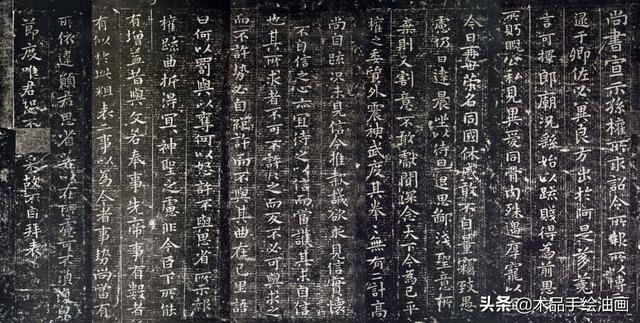 尚書宣示孫權所求詔令所報所以博
逮于卿佐必冀良方出於阿是芻蕘
言可擇郎廟況繇始以疏賤得為前恩
所盻睨公私見異愛同骨肉殊遇厚寵以
今日再世榮名同國休慼敢不自量竊致愚
慮仍日達晨坐以待旦退思鄙淺聖意所
棄則又割意不敢獻聞深念天下今為已平
權之委質外震神武度其拳拳無有二計高
尚自疏況未見信今推款誠欲求見信實懷
不自信之心亦宜待之以信而當護其未自信
也其所求者不可不許許之而反不必可與求之
而不許勢必自絕許而不與其曲在己里語
曰何以罰與以奪何以怒許不與思省所示報
權疏曲折得宜宜神聖之慮非今臣下所能
有增益昔與文若奉事先帝事有數者
有似於此粗表二事以為今者事勢尚當有
所依違願君思省若以在所慮可不須復貌
節度唯君恐不采故自拜表
头条 @木品手绘油画